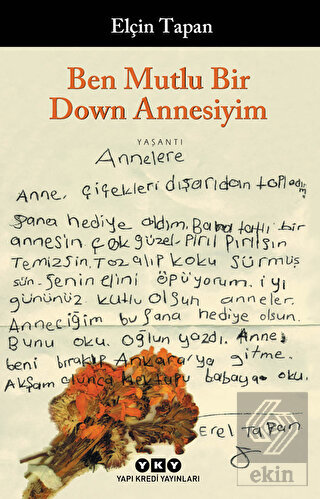 Elçin Tapan
Ben Mutlu Bir
Down Annesiyim
YAŞANTI
Annelere
Anne, çiçekleri dışarıdan topladım
sana hediye aldım. Baba tatlı bir
annesin çok güzel. Pırıl Pırılsın
Temizsin. Toz alıp koku sürmüş
sün. Senin elini öpüyorum. iyi
gününüz kutlu olsun anneler.
Anneciğim bu sana hediye olsun.
Bunu oku. oğlun yazdı. Anne
beni bırakıp Ankara'ya gitme.
Akşam olunca mektubu babaya oku.
Erel Tapan
YKY
YAPI KREDİ YAYINLARI
ekin